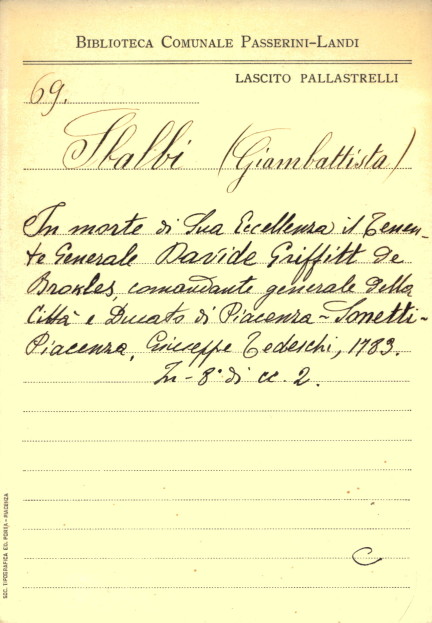 BIBLIOTECA COMUNALE PASSERINI-LANDI
LASCITO PALLASTRELLI
69.
(Giambattista)
In morte di Sua Eccellenza il Tenen-
te Generale Davide Griffitt de
comandante generale della
Città e Ducato di Piacenza - Sonetti -
Piacenza, Giuseppe Tedeschi, 1783.
In-8° di cc. 2.
C
SOC. TIPOGRAFICA ED. PORTA - PIACENZA